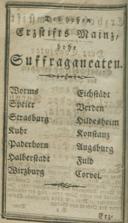 Des hohen
Erzstifts Mainz,
hohe
Suffraganeaten.
Worms
Speier
Strasburg
Kuhr
Paderborn
Halberstadt
Wirzburg
Eichstädt
Verden
Hildesheim
Konstanz
Augsburg
Fuld
Corvei.
Erz-